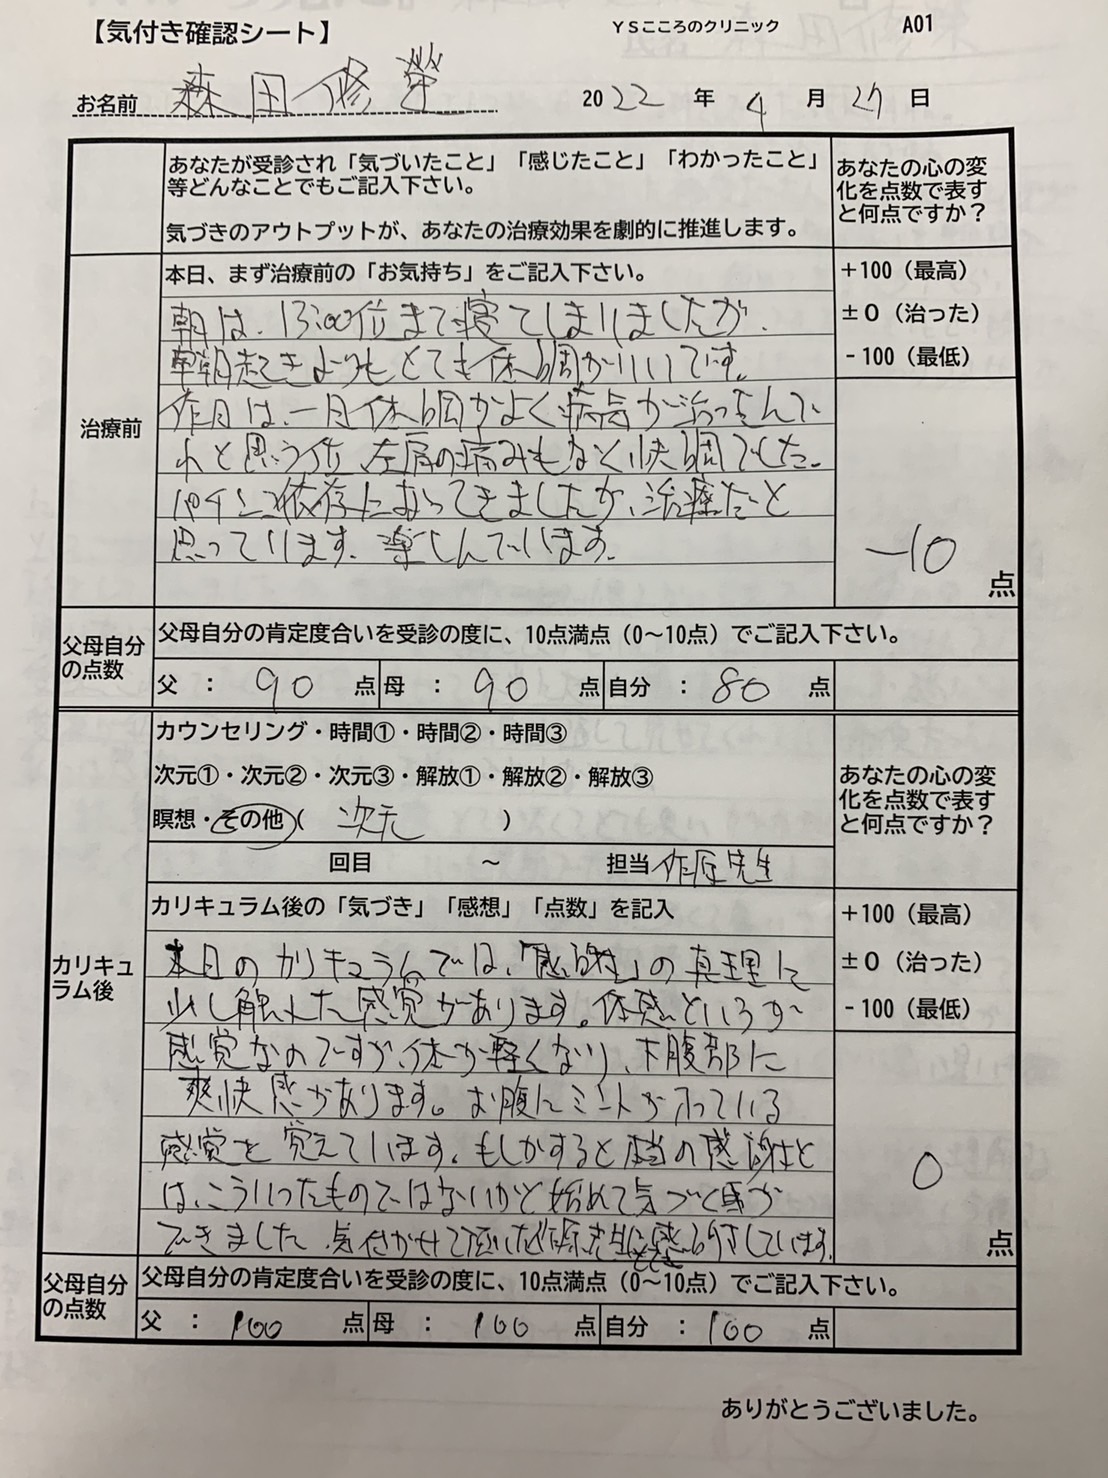 【気付き確認シート】 YSこころのクリニック A01
お名前 森田修 2022年4月27日
あなたが受診され「気づいたこと」「感じたこと」「わかったこと」
等どんなことでもご記入下さい。
気づきのアウトプットが、あなたの治療効果を劇的に推進します。
あなたの心の変
化を点数で表す
と何点ですか？
治療前
本日、まず治療前の「お気持ち」をご記入下さい。
朝は、13:00位まで寝てしまいましたが、
早朝起きよりもとても体調がいいです。
昨日は、一日体調がよく病気が治ったんて
れと思う位、左肩の痛みもなく快調でした。
パチンコ依存になってきましたが、治療だと
思っています。楽しんでいます。
+100（最高）
±0（治った）
-100（最低）
-10点
父母自分
の点数
父母自分の肯定度合いを受診の度に、10点満点（0～10点）でご記入下さい。
父：90点 母：90点 自分：80点
カウンセリング・時間①・時間②・時間③
次元①・次元②・次元③・解放①・解放②・解放③
瞑想・その他（次元）
回目 ～ 担当 作原先生
あなたの心の変
化を点数で表す
と何点ですか？
カリキュ
ラム後
カリキュラム後の「気づき」「感想」「点数」を記入
本日のカリキュラムでは、「感謝」の真理に
少し触れた感覚があります。体感というか
感覚なのですが、体が軽くなり、下腹部に
爽快感があります。お腹にミントが入っている
感覚を覚えています。もしかすると本当の感謝と
は、こういったものではないかと始めて気づく事が
できました。気付かせて頂いた作原先生にとても感謝しています。
+100（最高）
±0（治った）
-100（最低）
0点
父母自分
の点数
父母自分の肯定度合いを受診の度に、10点満点（0～10点）でご記入下さい。
父：100点 母：100点 自分：100点
ありがとうございました。